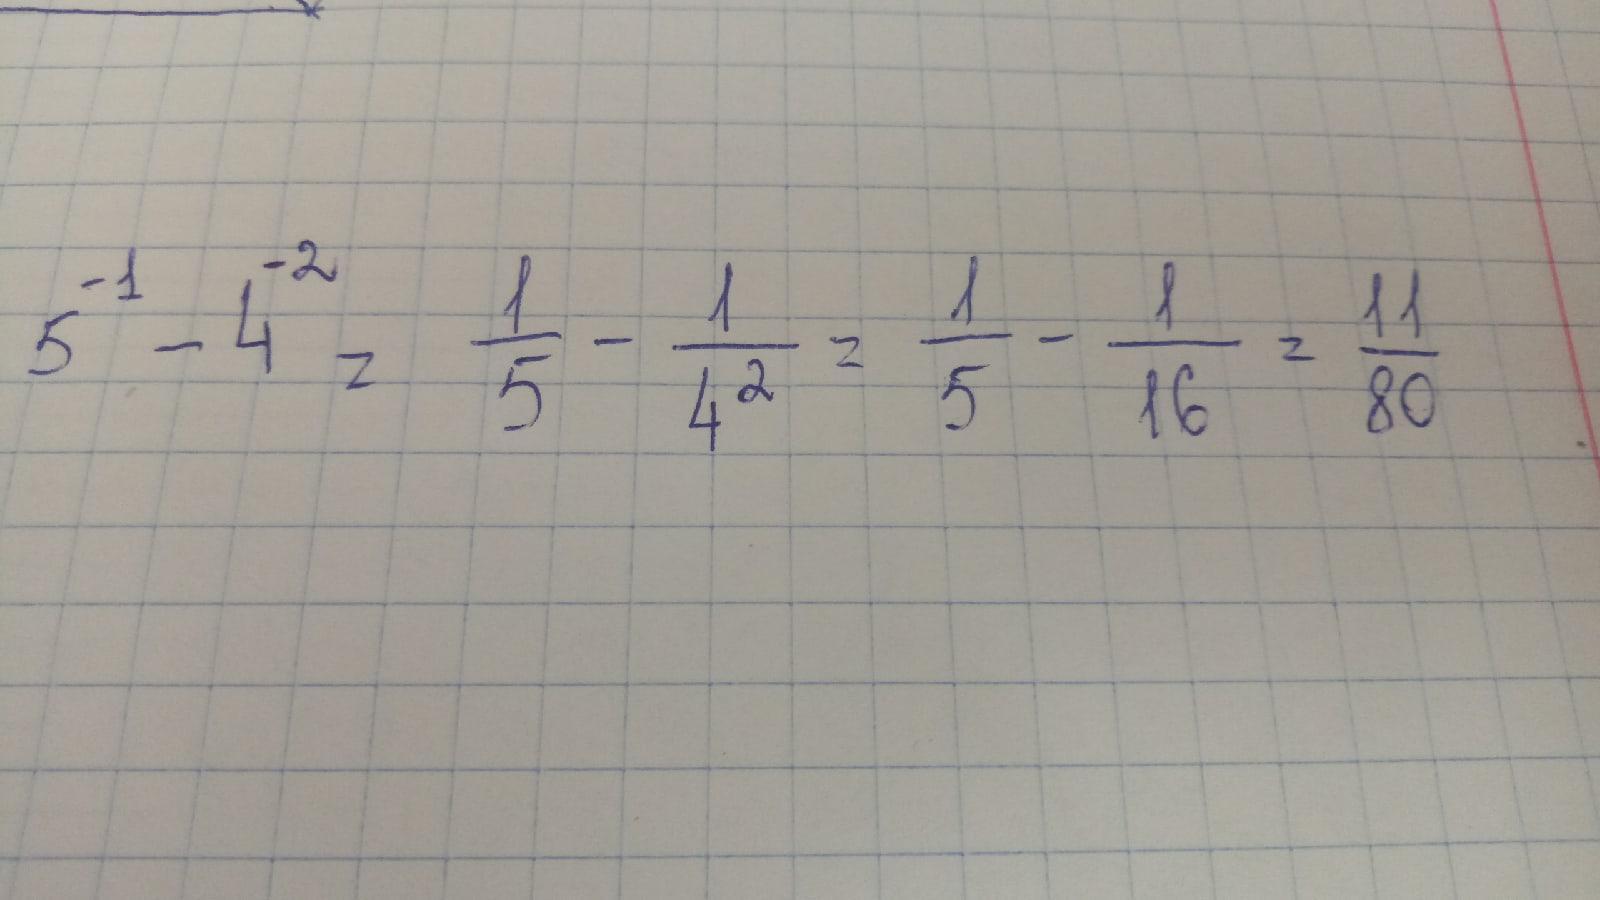 5⁻¹ - 4⁻² = 1/5 - 1/4² = 1/5 - 1/16 = 11/80